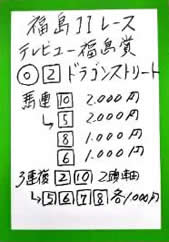 福島11レース
テレビュー福島賞
◎ 2 ドラゴンストリート
馬連 10 2.000円
↳ 5 2.000円
8 1.000円
6 1.000円
3連複 2 10 2頭軸
↳ 5 6 7 8 各1000円